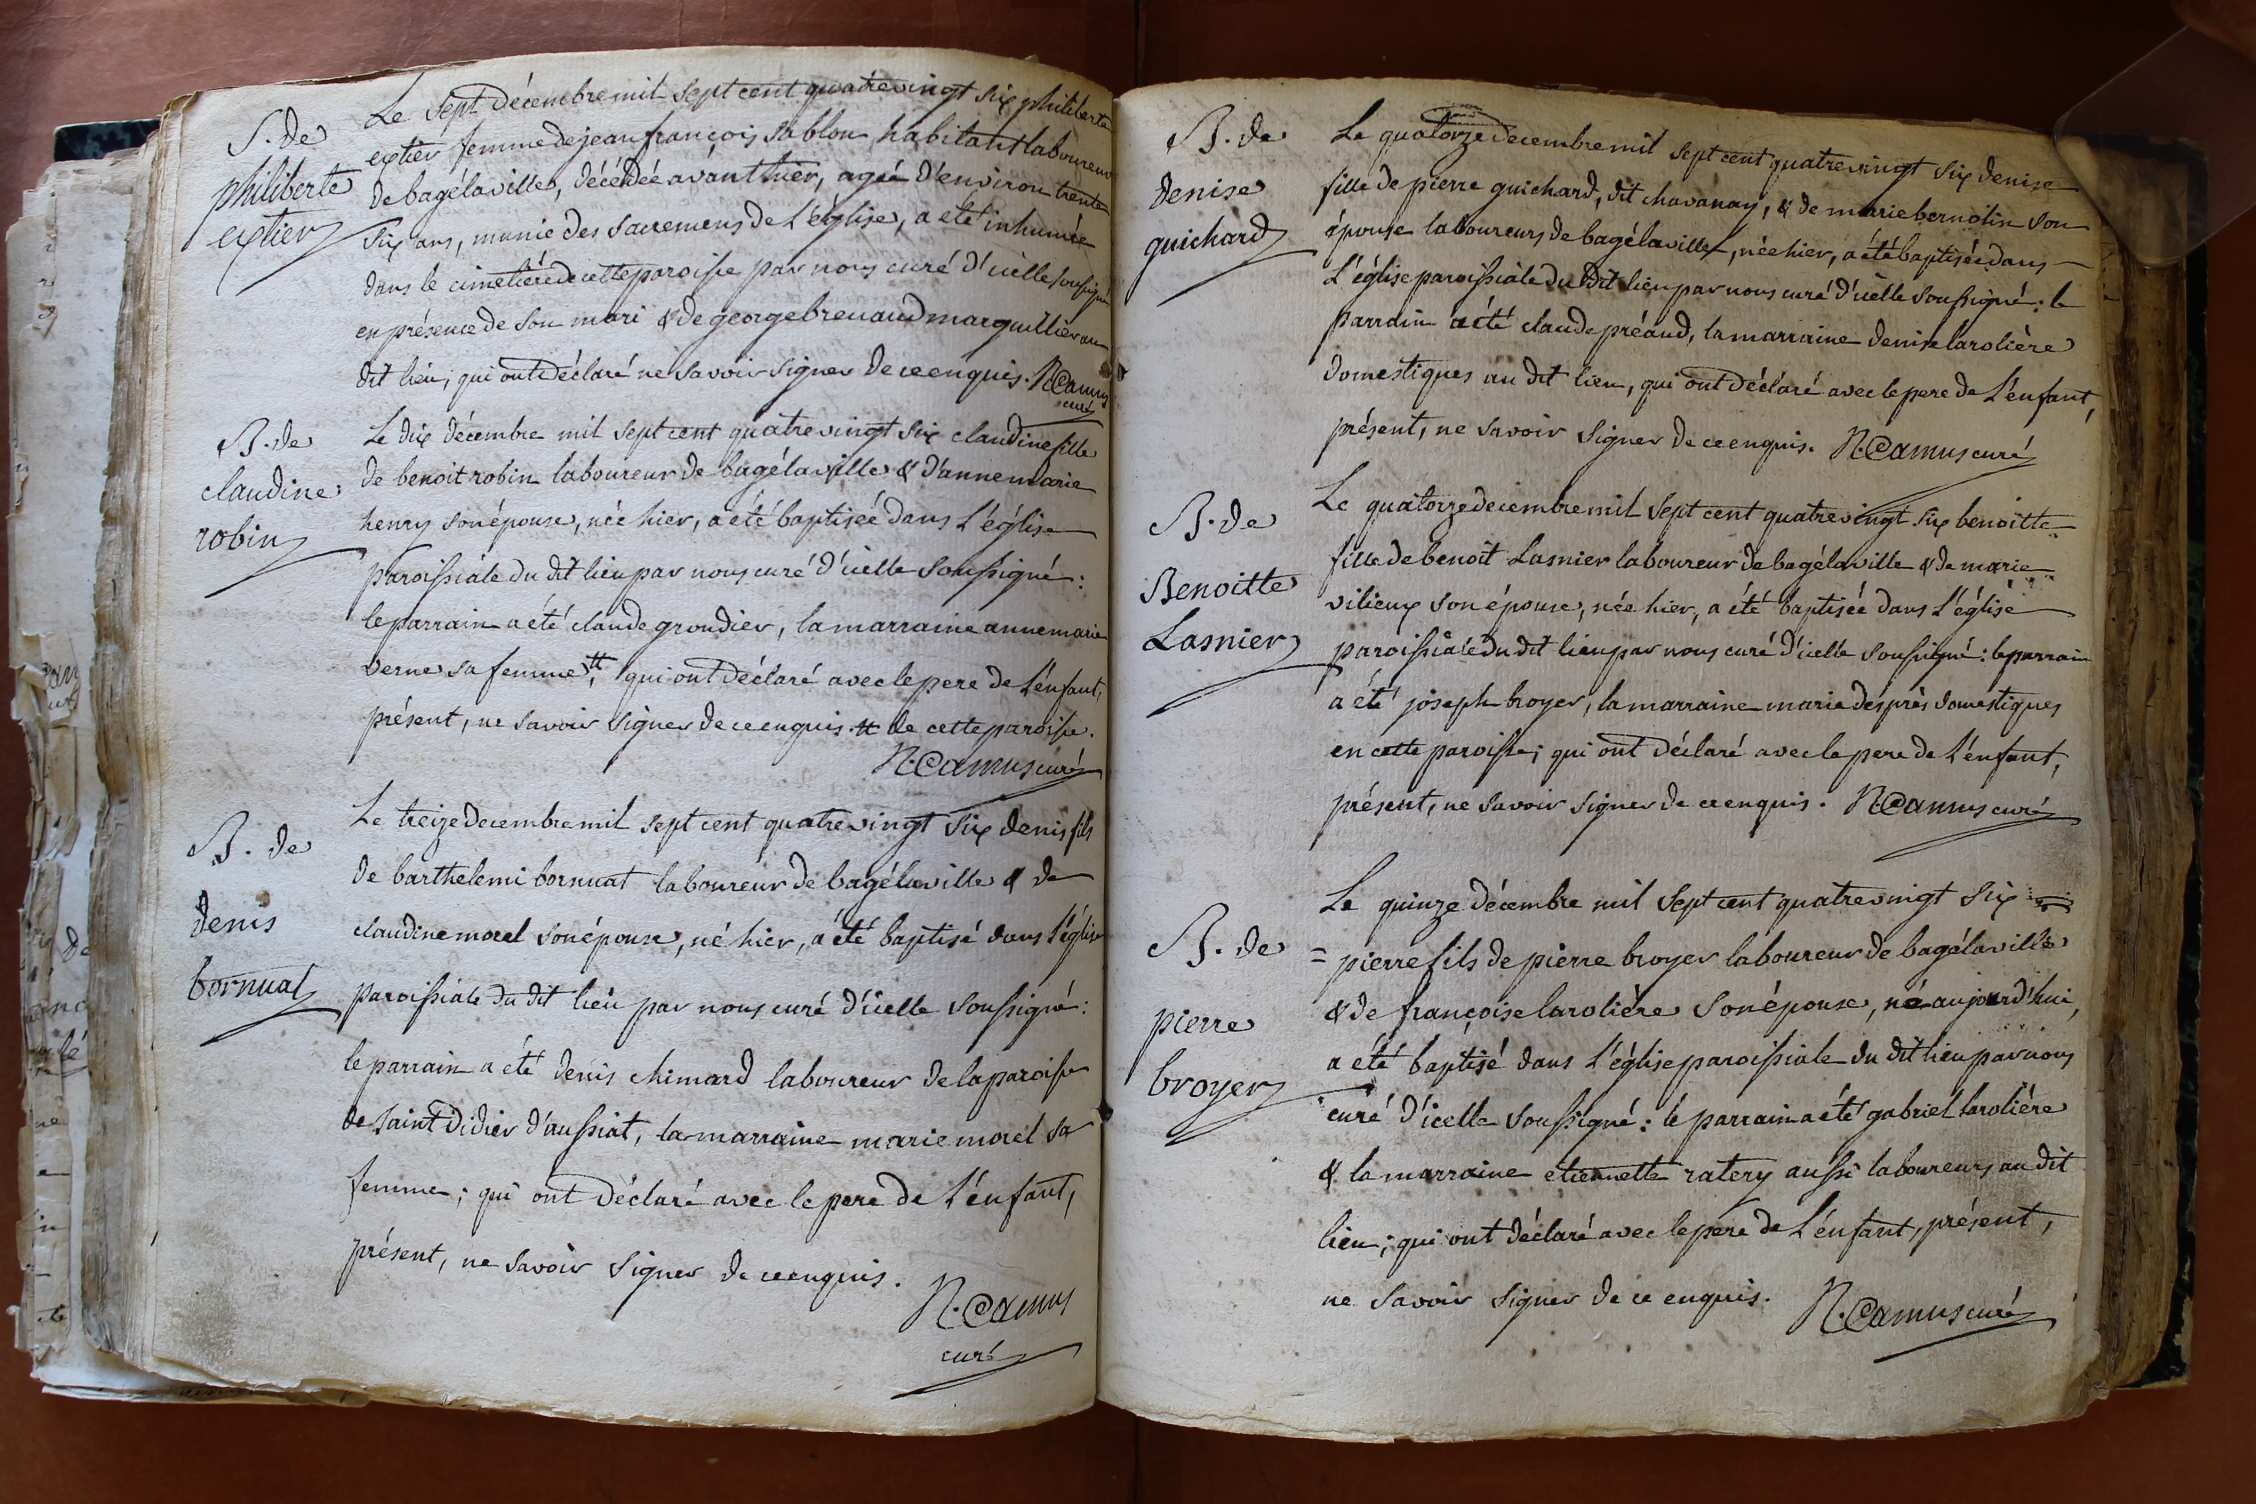 S. de
philiberte
extier
Le sept décembre mil sept cent quatre vingt six philiberte
extier femme de jean françois sablon habitant laboureur
de bagé la ville, décédée avant hier, agée d'environ trente
six ans, munie des sacremens de l'église, a eté inhumée
dans le cimetiére de cette paroisse par nous curé d'icelle soussigné
en présence de son mari & de george brevaud marguillier au
dit lieu; qui ont déclaré ne savoir signer de ce enquis. N. Camus
curé
B. de
claudine
robin
Le dix décembre mil sept cent quatre vingt six claudine fille
de benoit robin laboureur de bagé la ville & d'anne marie
henry son épouse, née hier, a été baptisée dans l'église
paroissiale du dit lieu par nous curé d'icelle soussigné:
le parrain a été claude grondier, la marraine anne marie
verne sa femme tt, qui ont déclaré avec le pere de l'enfant,
présent, ne savoir signer de ce enquis. tt de cette paroisse.
N. Camus curé
B. de
denis
bornuat
Le treize decembre mil sept cent quatre vingt six denis fils
de barthelemi bornuat laboureur de bagé la ville & de
claudine morel son épouse, né hier, a été baptisé dans l'église
paroissiale du dit lieu par nous curé d'icelle soussigné:
le parrain a été denis chimard laboureur de la paroisse
de saint didier d'aussiat, la marraine marie morel sa
femme; qui ont déclaré avec le pere de l'enfant,
présent, ne savoir signer de ce enquis.
N. Camus
curé
B. de
denise
guichard
Le quatorze decembre mil sept cent quatre vingt six denise
fille de pierre guichard, dit chavanay, & de marie bernolin son
épouse laboureurs de bagé la ville, née hier, a été baptisée dans
l'église paroissiale du dit lieu par nous curé d'icelle soussigné: le
parrain a été claude préaud, la marraine denise larolière
domestiques au dit lieu, qui ont déclaré avec le pere de l'enfant,
présent, ne savoir signer de ce enquis. N. Camus curé
B. de
Benoitte
Lasnier
Le quatorze decembre mil sept cent quatre vingt six benoitte
fille de benoit Lasnier laboureur de bagé la ville & de marie
vilieux son épouse, née hier, a été baptisée dans l'église
paroissiale du dit lieu par nous curé d'icelle soussigné: le parrain
a été joseph broyer, la marraine marie després domestiques
en cette paroisse; qui ont déclaré avec le pere de l'enfant,
présent, ne savoir signer de ce enquis. N. Camus curé
B. de
pierre
broyer
Le quinze décembre mil sept cent quatre vingt six
= pierre fils de pierre broyer laboureur de bagé la ville
& de françoise larolière son épouse, né aujourd'hui,
a été baptisé dans l'église paroissiale du dit lieu par nous
curé d'icelle soussigné: le parrain a été gabriel larolière
& la marraine etiennette ratery aussi laboureurs au dit
lieu; qui ont déclaré avec le pere de l'enfant, présent,
ne savoir signer de ce enquis. N. Camus curé